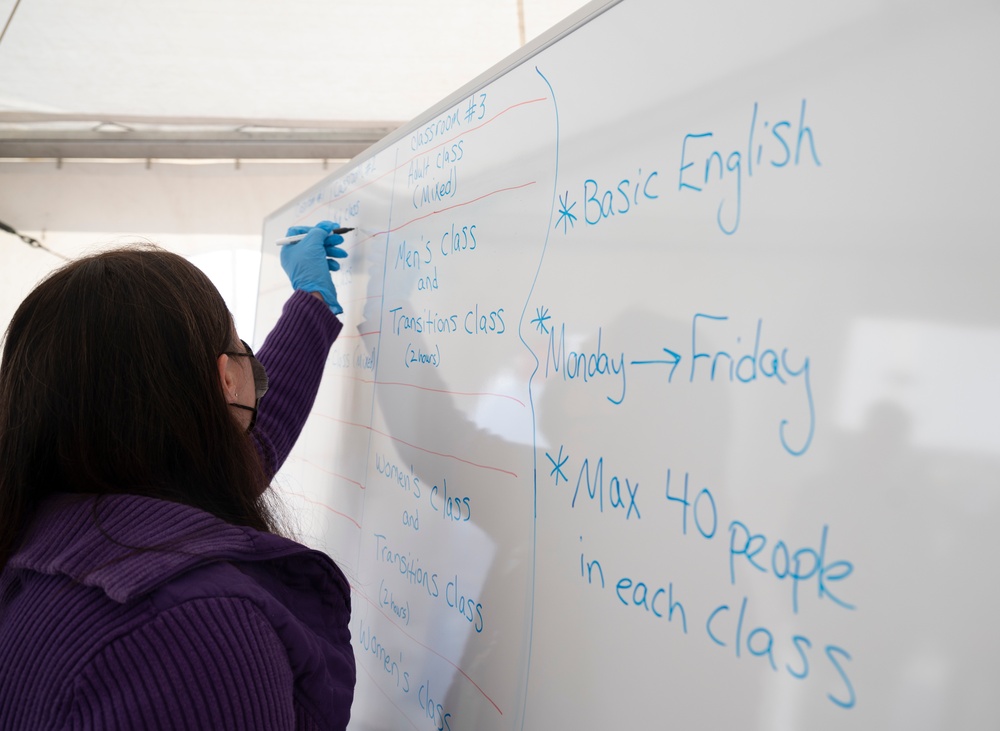 Classroom #3
Adult class
(Mixed)
Men's class
and
Transitions class
(2 hours)
Women's class
and
Transitions class
(2 hours)
Women's class
* Basic English
* Monday → Friday
* Max 40 people
in each class